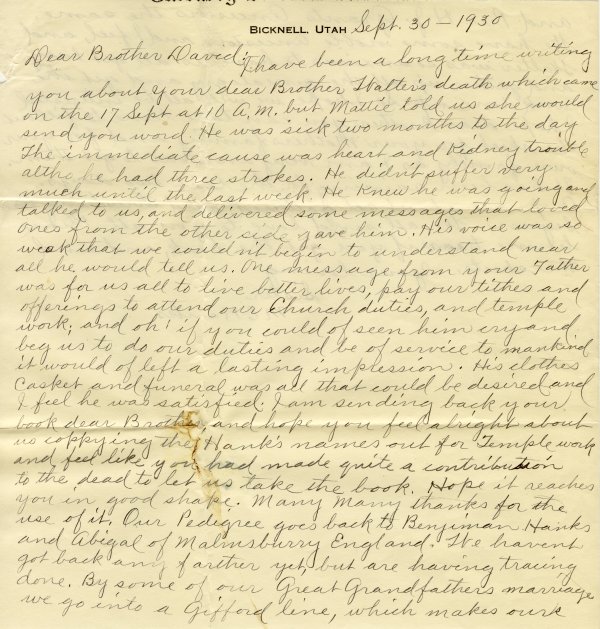 BICKNELL, UTAH Sept. 30 - 1930
Dear Brother David; I have been a long time writing
you about your dear Brother Walter's death which came
on the 17 Sept at 10 A.M. but Mattie told us she would
send you word. He was sick two months to the day
The immediate cause was heart and Kidney trouble
altho he had three strokes. He didn't suffer very
much until the last week. He knew he was going and
talked to us, and delivered some messages that loved
ones from the other side gave him. His voice was so
weak that we couldn't begin to understand near
all he would tell us. One message from your Father
was for us all to live better lives, pay our tithes and
offerings to attend our Church duties, and temple
work; and oh! if you could of seen him cry and
beg us to do our duties and be of service to mankind
it would of left a lasting impression. His clothes
Casket and funeral was all that could be desired and
I feel he was satisfied. I am sending back your
book dear Brother, and hope you feel alright about
us coppying the Hank's names out for Temple work
and feel like you had made quite a contribution
to the dead to let us take the book. Hope it reaches
you in good shape. Many Many thanks for the
use of it. Our Pedigree goes back to Benjiman Hanks
and Abigal of Malmsburry England. We havent
got back any farther yet, but are having tracing
done. By some of our Great Grandfathers marriage
we go into a Gifford line, which makes our